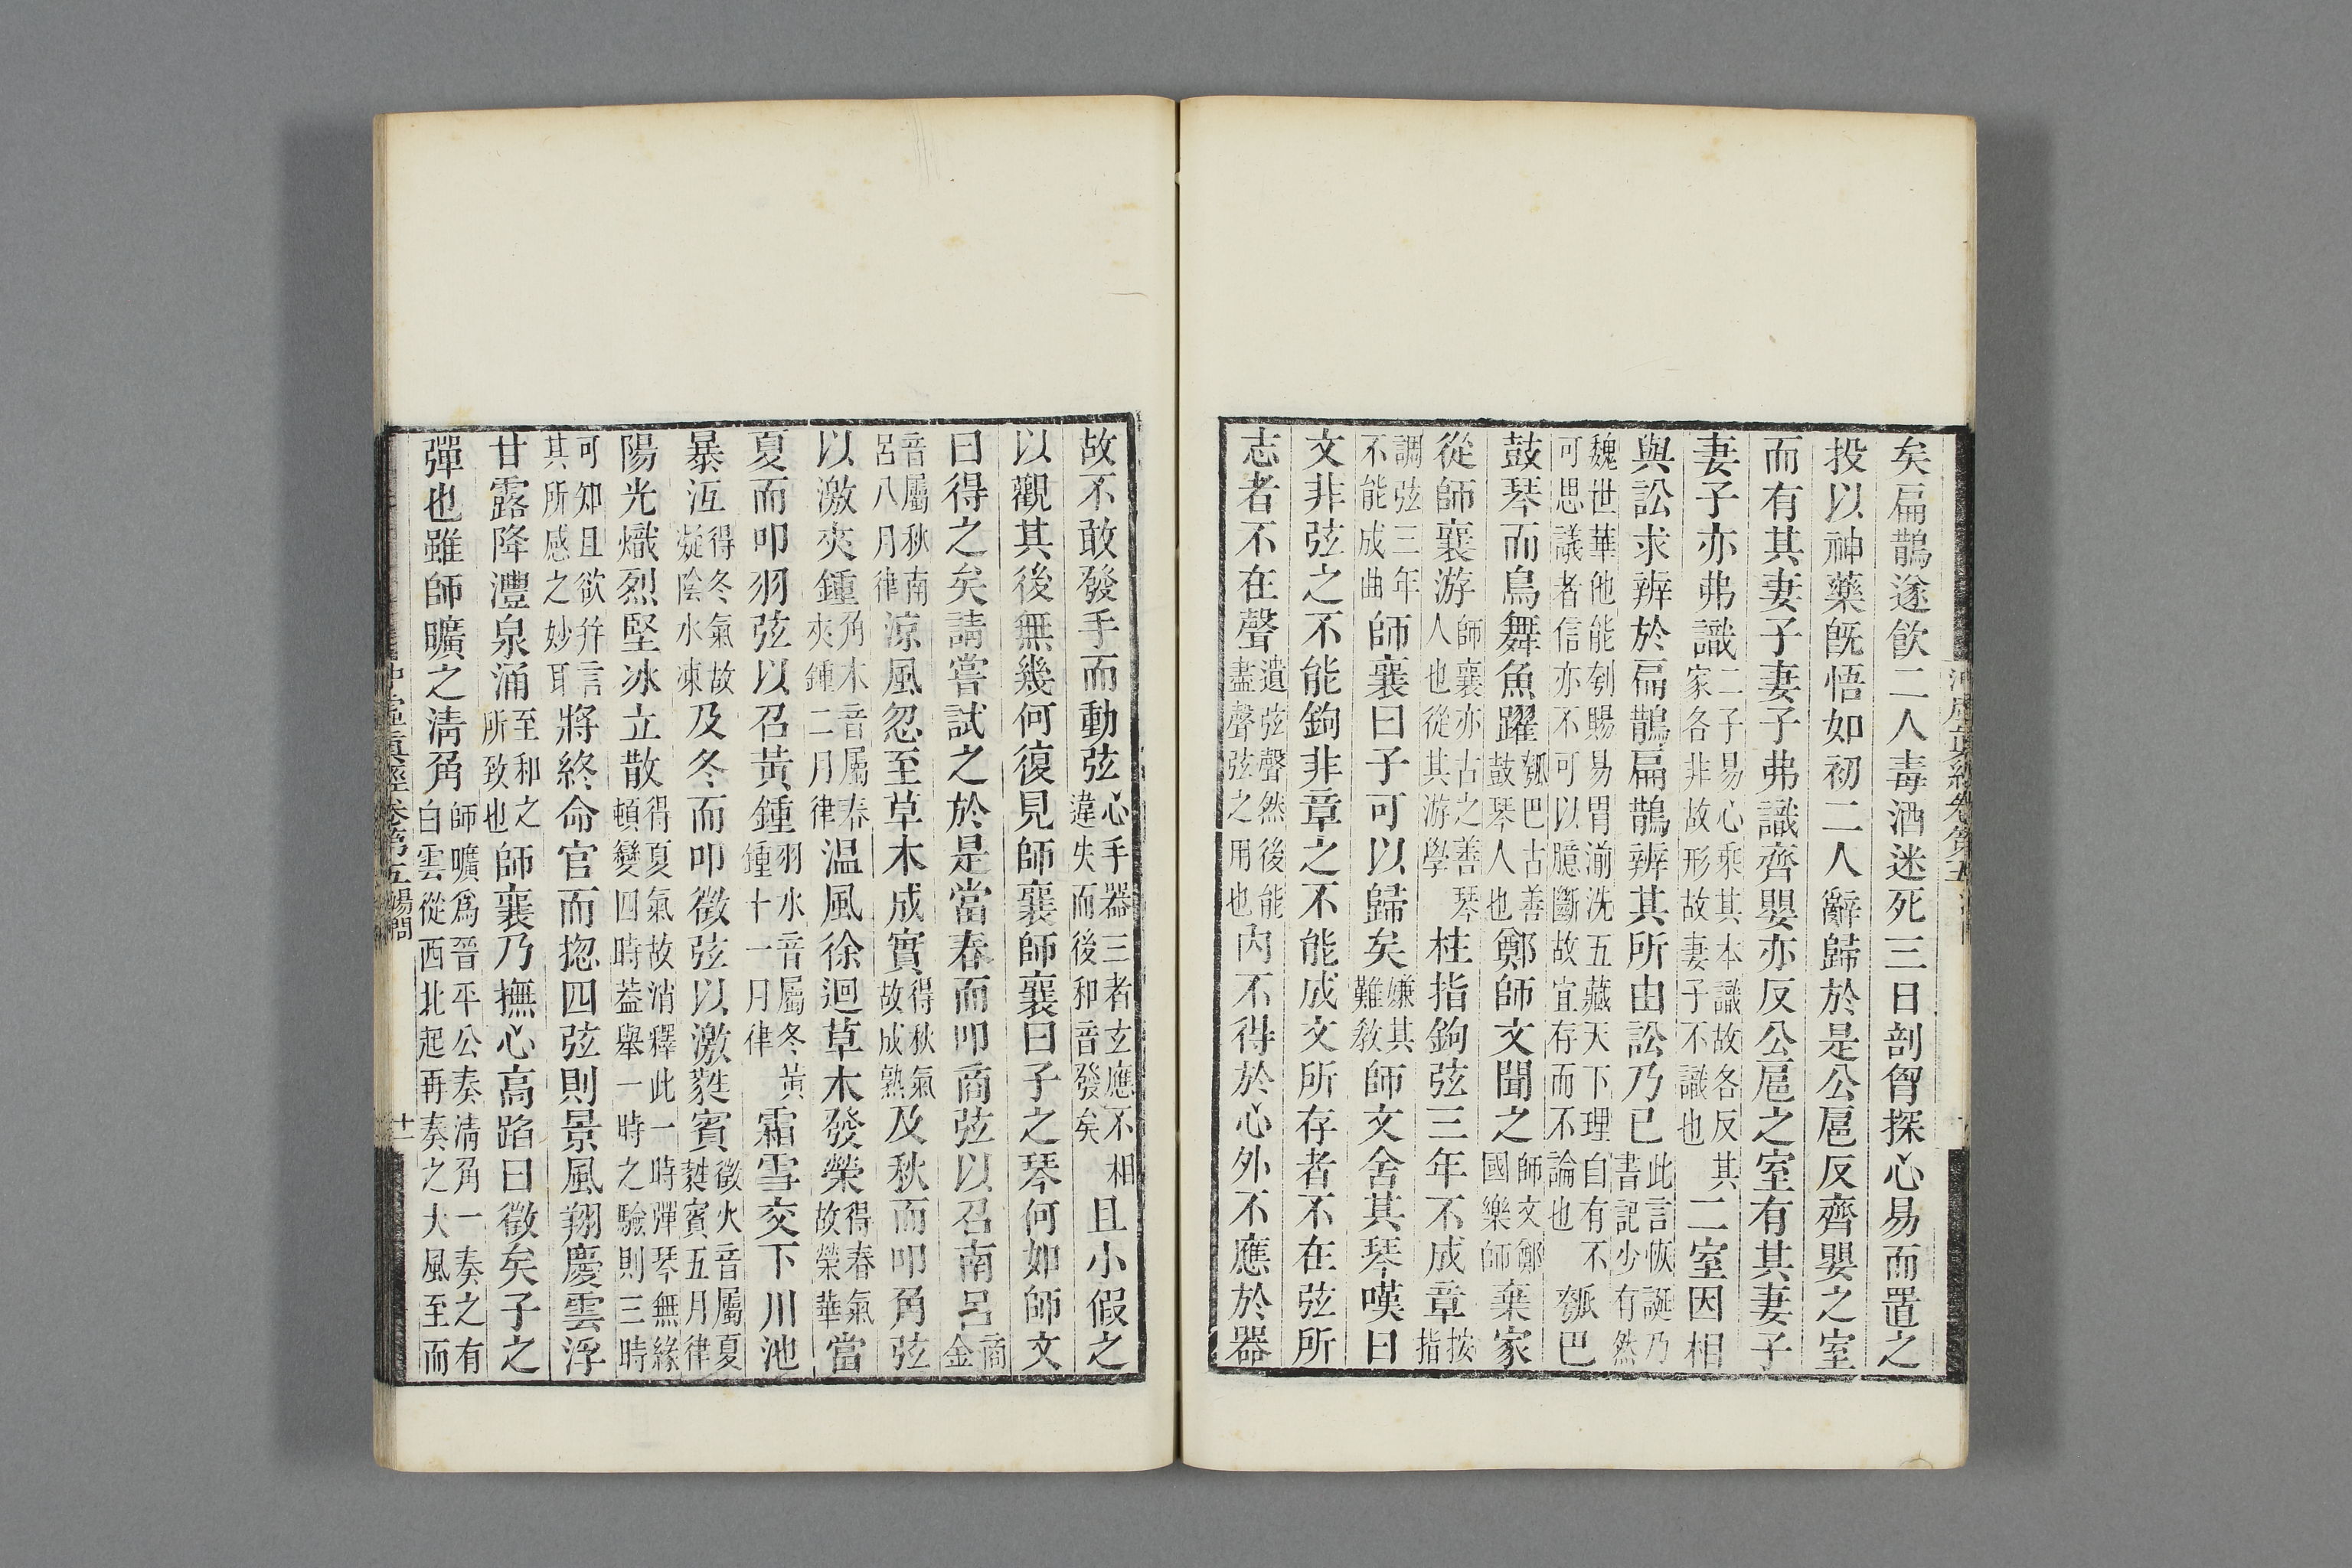 矣扁鵲遂飲二人毒酒迷死三日剖胷探心易而置之
投以神藥旣悟如初二人辭歸於是公扈反齊嬰之室
而有其妻子妻子弗識齊嬰亦反公扈之室有其妻子
妻子亦弗識二子易心乘其本識故各反其家各非故形故妻子不識也二室因相
與訟求辨於扁鵲扁鵲辨其所由訟乃已此言恢誕乃書記少有然
魏世華佗能刳腸易胃湔洗五藏天下理自有不可思議者信亦不可以臆斷故宜存而不論也瓠巴
鼓琴而鳥舞魚躍瓠巴古善鼓琴人也鄭師文聞之師文鄭國樂師棄家
從師襄游師襄亦古之善琴人也從其游學柱指鉤弦三年不成章按指
調弦三年不能成曲師襄曰子可以歸矣嫌其難敎師文舍其琴嘆曰
文非弦之不能鉤非章之不能成文所存者不在弦所
志者不在聲遺弦聲然後能盡聲弦之用也內不得於心外不應於器
故不敢發手而動弦心手器三者玄應不相違失而後和音發矣且小假之
以觀其後無幾何復見師襄師襄曰子之琴何如師文
曰得之矣請嘗試之於是當春而叩商弦以召南呂商金
音屬秋南呂八月律涼風忽至草木成實得秋氣故成熟及秋而叩角弦
以激夾鍾角木音屬春夾鍾二月律温風徐迴草木發榮得春氣故榮華當
夏而叩羽弦以召黃鍾羽水音屬冬黃鍾十一月律霜雪交下川池
暴沍得冬氣故凝陰水凍及冬而叩徵弦以激蕤賓徵火音屬夏蕤賓五月律
陽光熾烈堅冰立散得夏氣故消釋此一時彈琴無緣頓變四時葢舉一時之驗則三時
可知且欲幷言其所感之妙耳將終命宮而揔四弦則景風翔慶雲浮
甘露降澧泉涌至和之所致也師襄乃撫心高蹈曰微矣子之
彈也雖師曠之淸角師曠爲晉平公奏淸角一奏之有白雲從西北起再奏之大風至而
沖虛眞經卷第五湯問 廿一